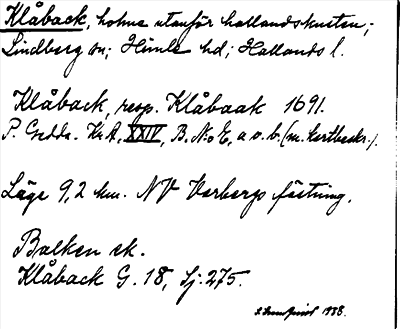 Klåback, holme utanför hallandskusten;
Lindberg sn; Himle hd; Hallands l.
Klåback, resp. Klåbaak 1691.
P. Gedda. Kr.A, XXIV, B. N:o E, a o. b. (m. kartbeskr.).
Läge 9,2 km. NV Varbergs fästning.
Balken sk.
Klåback G. 18, Sj. 275.
1938.